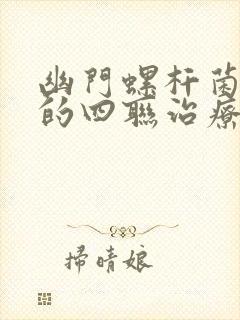 幽門螺杆菌
的四聯治療
掃晴娘